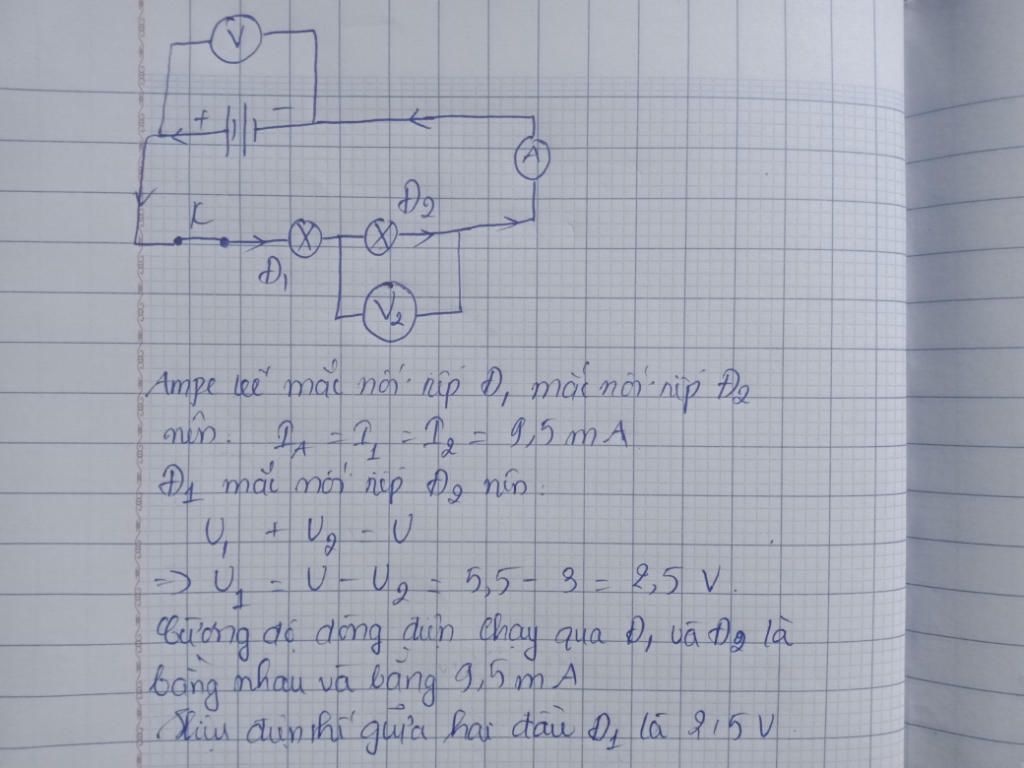 V
+ -
A
K
Đ2
Đ1
V2
Ampe kế mắc nối tiếp Đ1 mắc nối tiếp Đ2
nên. IA = I1 = I2 = 9,5 mA
Đ1 mắc nối tiếp Đ2 nên:
U1 + U2 = U
=> U1 = U - U2 = 5,5 - 3 = 2,5 V.
Cường độ dòng điện chạy qua Đ1 và Đ2 là
bằng nhau và bằng 9,5 mA
Hiệu điện thế giữa hai đầu Đ1 là 2,5 V